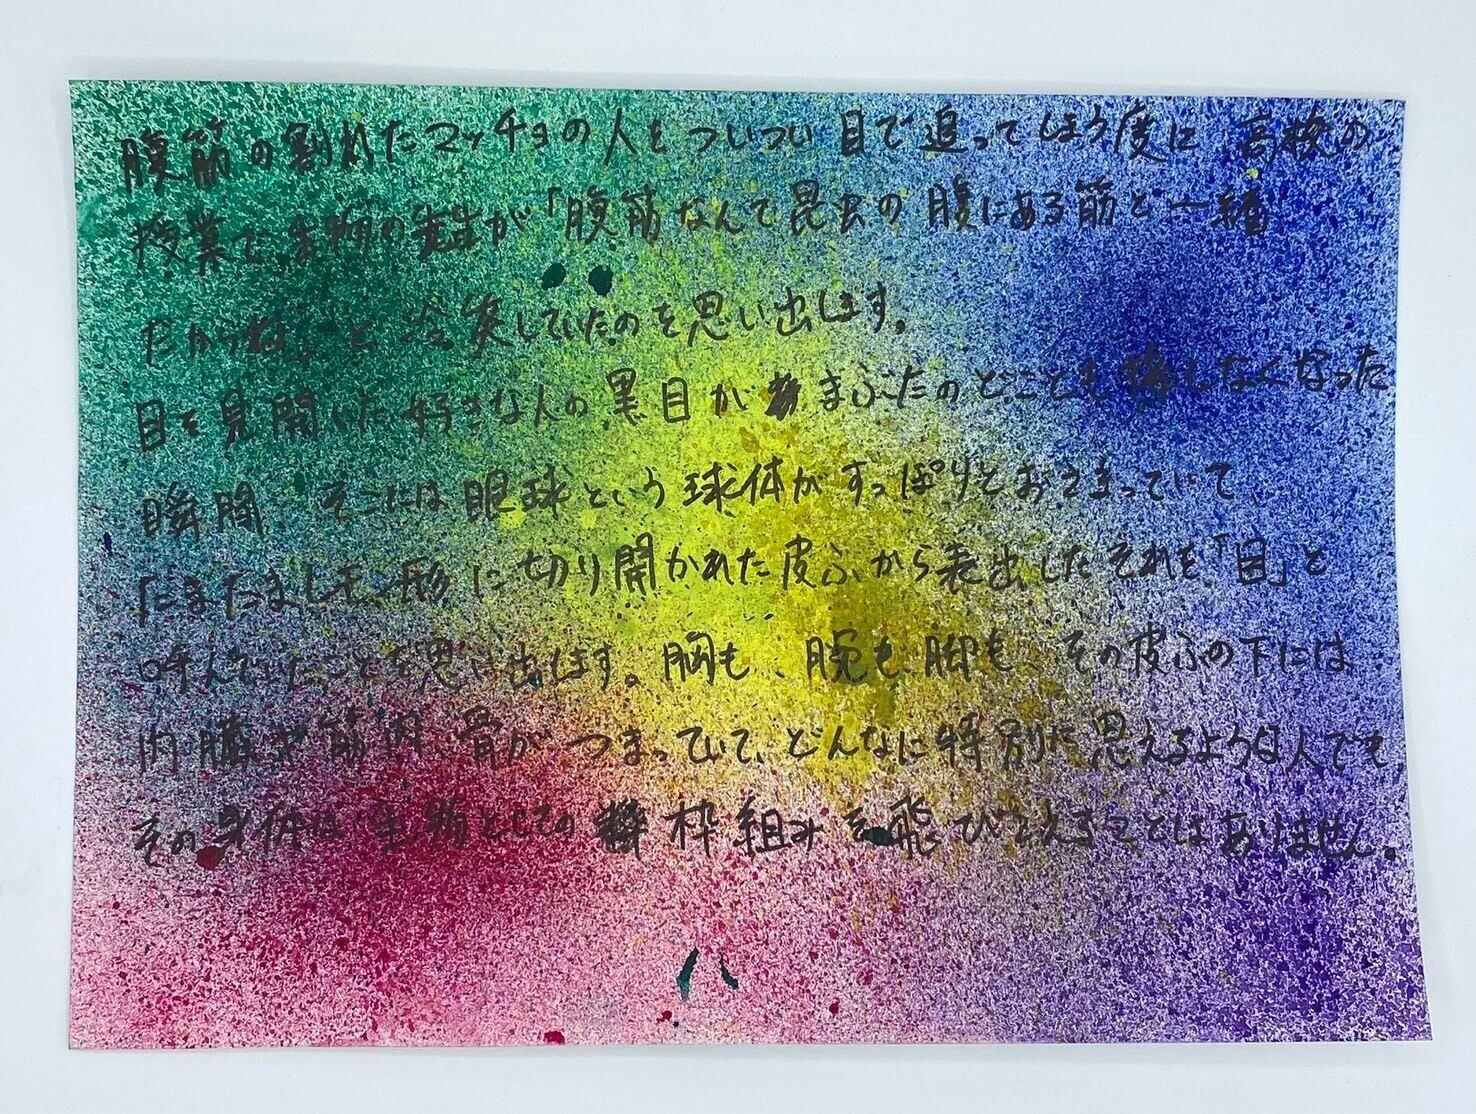 腹筋の割れたマッチョの人をついつい目で追ってしまう度に 高校の
授業で生物の先生が「腹筋なんて昆虫の腹にある筋と一緒
だからね」と冷笑していたのを思い出します。
目を見開いた好きな人の黒目がまぶたのどことも接しなくなった
瞬間、そこには眼球という球体がすっぽりとおさまっていて、
たまたまし形に切り開かれた皮ふから表出したそれを「目」と
呼んでいたことを思い出します。胸も、腕も脚も、その皮ふの下には
内臓や筋肉、骨がつまっていて、どんなに特別に思えるような人でも
その身体は生物としての枠組みを飛びこえることはありません。